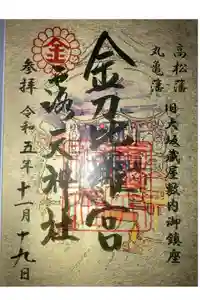 高松藩
丸亀藩
旧大坂蔵屋敷内御鎮座
金刀比羅宮
金
露天神社
参拝 令和五年十一月十九日